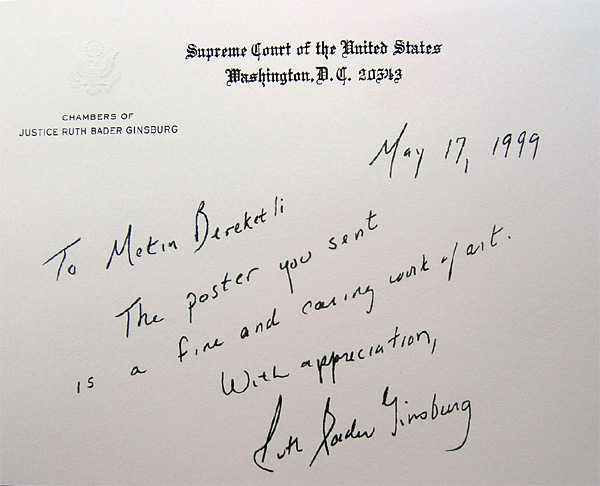 Supreme Court of the United States
Washington, D.C. 20543
CHAMBERS OF
JUSTICE RUTH BADER GINSBURG
May 17, 1999
To Metin Bereketli
The poster you sent
is a fine and caring work of art.
With appreciation,
Ruth Bader Ginsburg